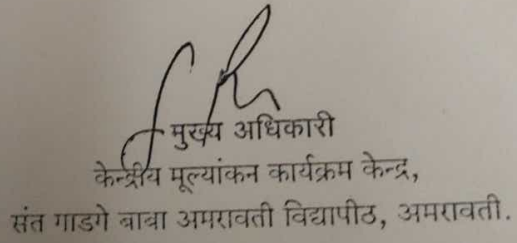 मुख्य अधिकारी
केन्द्रीय मूल्यांकन कार्यक्रम केन्द्र,
संत गाडगे बाबा अमरावती विद्यापीठ, अमरावती.